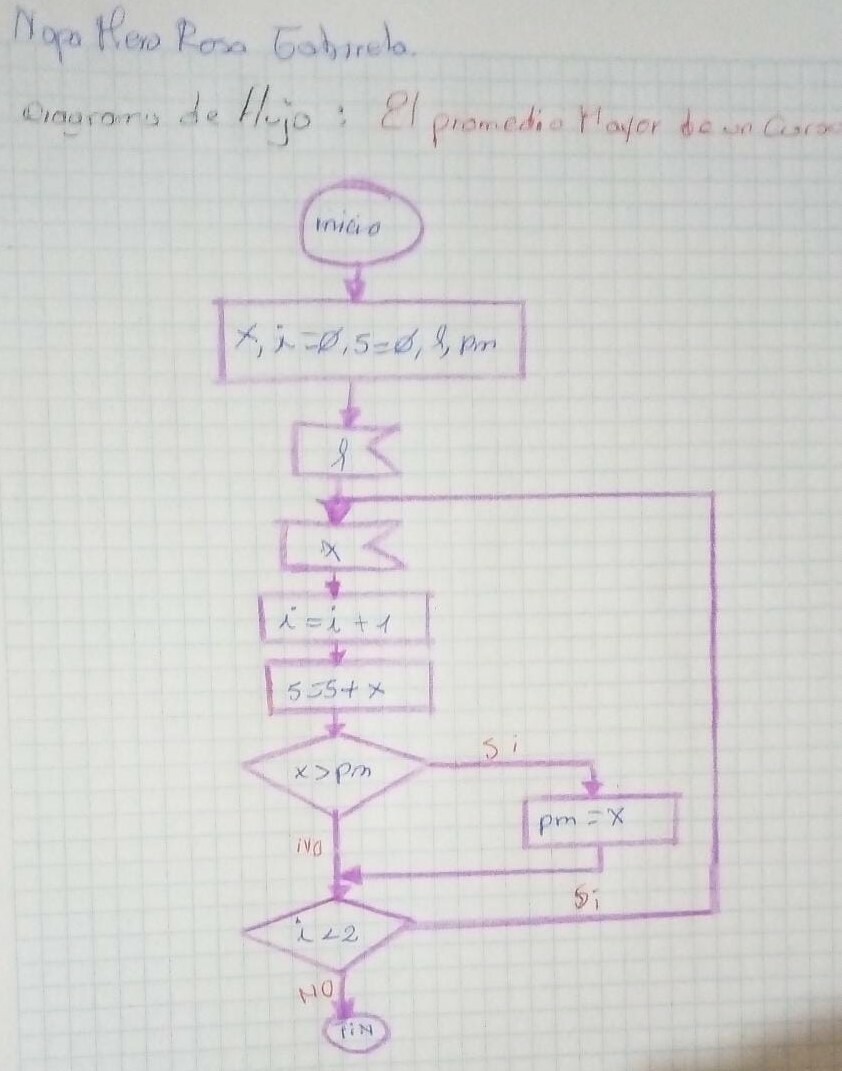 Rosa Gabriela.
Diagrama de flujo: El promedio Mayor de un Curso
inicio
x, i=0, s=0, l, pm
l
x
i = i + 1
s=s+ x
x > pm
Si
pm = x
NO
Si
i < 2
NO
FiN